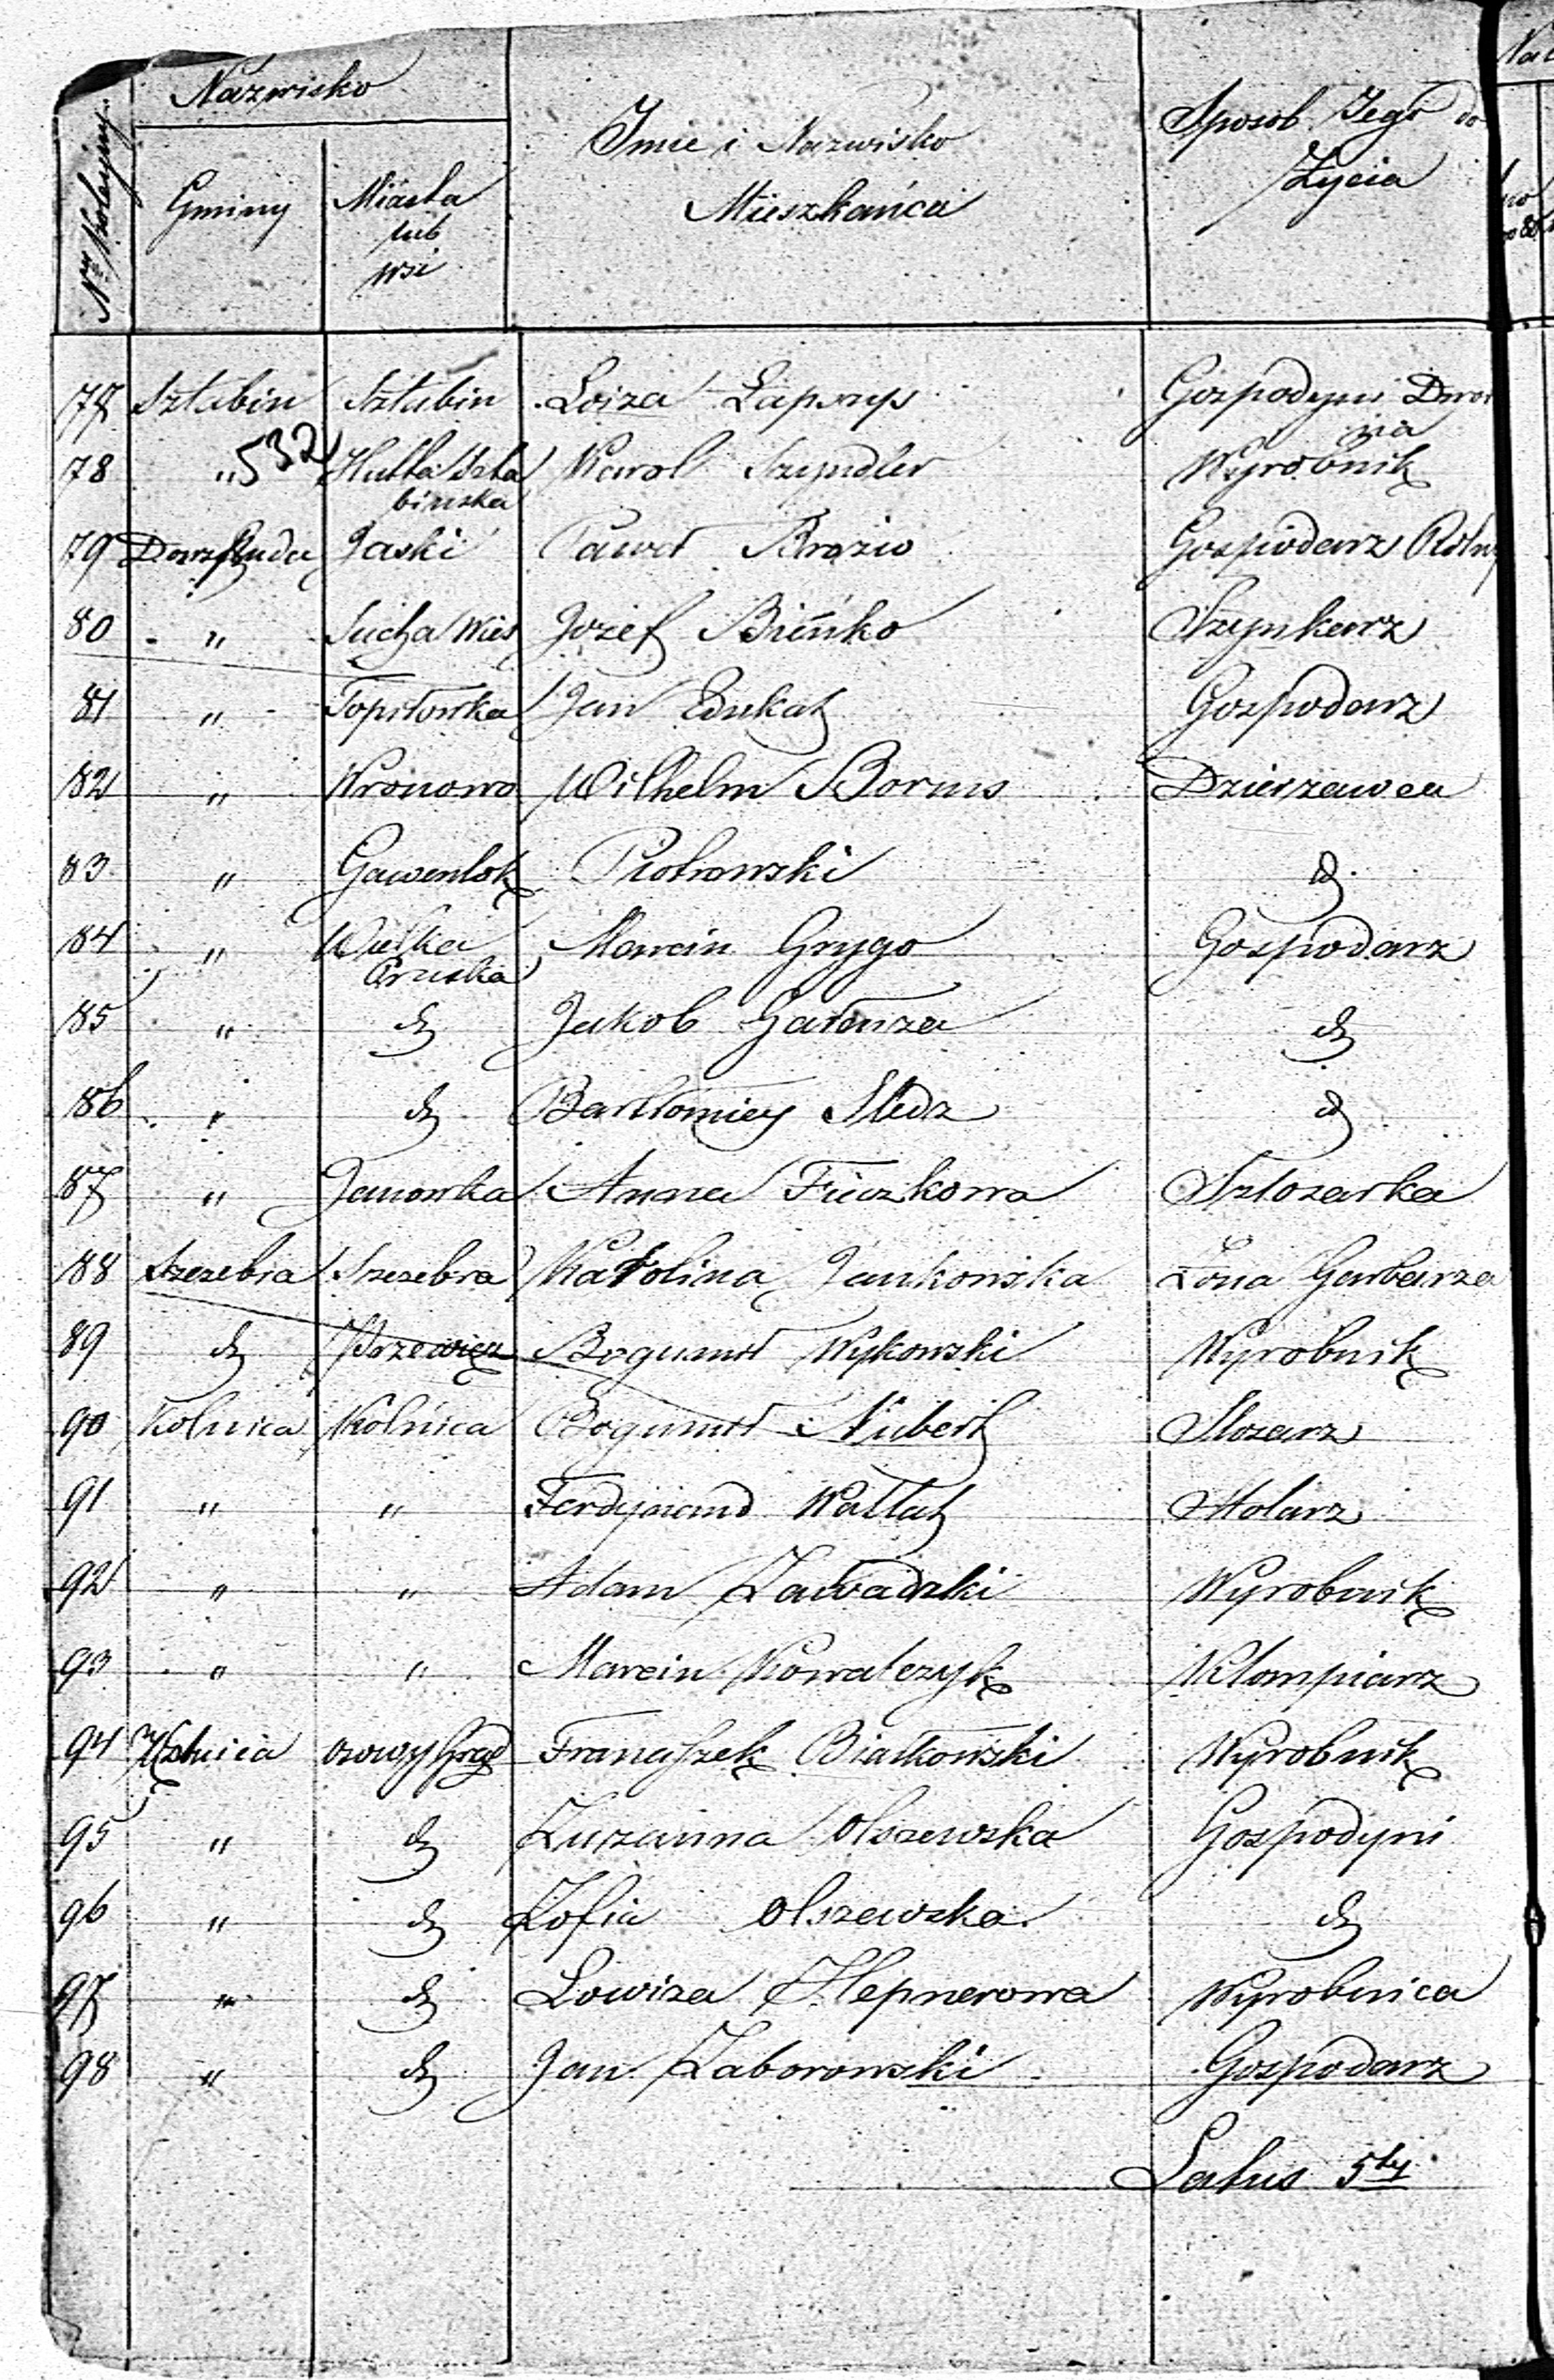 Nazwisko
Nr Koleyny Gminy Miasta lub wsi Imie i Nazwisko Mieszkańca Sposob Jego do Życia
77 Sztabin Sztabin Loiza Łapsys Gospodyni Dwor
na
78 " 532 Hutta Szta Karol Szyndler Wyrobnik
binska
79 DowsRuda Jaski Paweł Broziо Gospodarz Roln
80 " Sucha Wies Jozef Bieńko Szynkarz
81 " Topiłowka Jan Edukat Gospodarz
82 " Wronowo Wilhelm Borms Dzierzawca
83 " Gawenlok Piotrowski d
84 " Wulka Marcin Grygo Gospodarz
Cruska
85 " d Jakob Gałenza d
86 " d Bartłomiey Sledz d
87 " Janowka Anna Fuczkowa Szlosarka
88 Szczebra Szczebra Karolina Jankowska Żona Garbarza
89 d Przewięz Bogumił Wykowski Wyrobnik
90 Kolnica Kolnica Bogumił Nibert Slosarz
91 " " Ferdynand Wallat Stolarz
92 " " Adam Zawadzki Wyrobnik
93 " " Marcin Kowalczyk Klompiarz
94 Kolnica Franciszek Białkowski Wyrobnik
95 " d Zuzanna Olszewska Gospodyni
96 " d Zofia Olszewska d
97 " d Lowiza Hepnerowa Wyrobnica
98 " d Jan Zaborowski Gospodarz
Latus 5ty